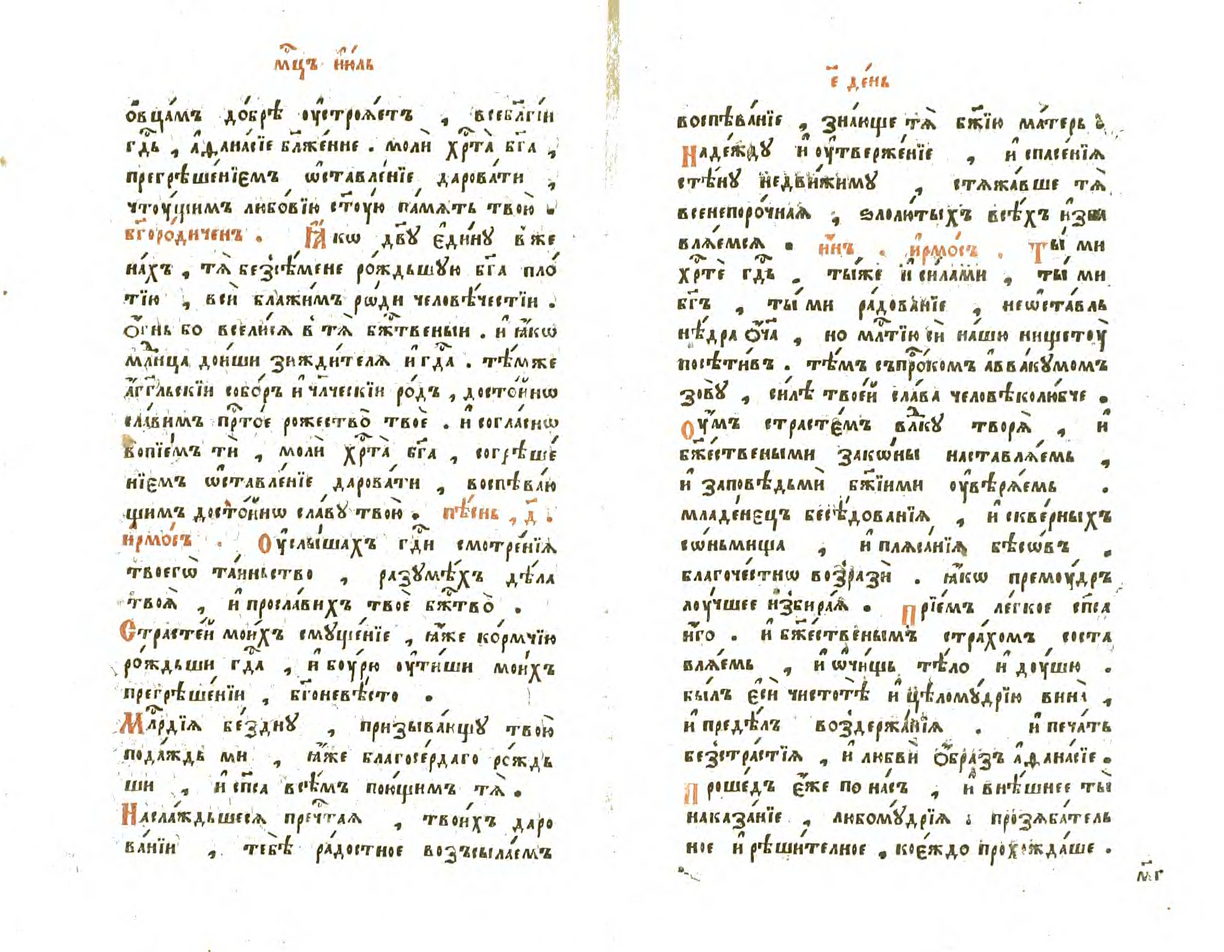 мцⷭ҇ъ і҆ю́ль
ѻ҆вца́мъ до́брѣ ᲂу҆строѧ́етъ , всебл҃гі́и
гдⷭ҇ь , а҆ѳана́сїе бл҃же́нне . молѝ хрⷭ҇та̀ бг҃а ,
прегрѣше́нїемъ ѡ҆ставле́нїе дарова́ти ,
чтꙋ́щимъ любо́вїю ст҃ꙋ́ю па́мѧть твою̀ .
бг҃оро́диченъ . Ꙗ҆́кѡ дв҃ꙋ є҆ди́нꙋ в же
на́хъ , тѧ̀ без̾ сѣ́мене ро́ждьшꙋю бг҃а пло́
тїю , всѝ блажи́мъ ро́ди человѣ́честїи .
ѻ҆́гнь бо всели́сѧ в тѧ̀ бж҃твеныи . и҆ ꙗ҆́кѡ
млⷣнца дои́ши зижди́телѧ и҆ гдⷭ҇а . тѣ́мже
а҆́гг҃льскїи собо́ръ и҆ чл҃ческїи ро́дъ , досто́йнѡ
сла́вимъ прⷭ҇то́е рожество̀ твоѐ . и҆ согла́снѡ
вопїе́мъ тѝ , молѝ хрⷭ҇та̀ бг҃а , согрѣше́
нїемъ ѡ҆ставле́нїе дарова́ти , воспѣва́ю
щимъ досто́йнѡ сла́вꙋ твою̀ . пѣ́снь , д҃ .
і҆рмо́съ . Оу҆слы́шахъ гдⷭ҇и смотре́нїѧ
твоегѡ̀ та́иньство , разꙋмѣ́хъ дѣ́ла
твоѧ̀ , и҆ просла́вихъ твоѐ бж҃тво̀ .
Страсте́й мои́хъ смꙋще́нїе , ꙗ҆́же ко́рмчїю
ро́ждьши гдⷭ҇а , и҆ бꙋ́рю ᲂу҆ти́ши мои́хъ
прегрѣше́нїи , бг҃оневѣ́сто .
Млⷭ҇рдїѧ бе́зднꙋ , призыва́ющꙋ твою̀
пода́ждь ми , ꙗ҆́же благосе́рдаго ро́ждь
ши , и҆ сп҃са всѣ́мъ пою́щимъ тѧ̀ .
Наслажьдьшесѧ пречⷭ҇таѧ , твои́хъ даро
ва́нїи , тебѣ̀ ра́достное возъсыла́емъ
є҃ де́нь
воспѣва́нїе , зна́юще тѧ̀ бж҃їю ма́терь .
Наде́ждꙋ и҆ ᲂу҆твержє́нїе , и҆ спасе́нїѧ
стѣ́нꙋ недви́жимꙋ , стѧжа́вше тѧ̀
всенепоро́чнаѧ , ѕлолю́тыхъ всѣ́хъ и҆зба
влѧ́емсѧ . и҆́нъ . і҆рмо́съ . Ты́ ми
хрⷭ҇тѐ гдⷭ҇ь , ты́же и҆ си́лами , ты́ ми
бг҃ъ , ты́ ми ра́дованїе , не ѡ҆ста́вль
нѣ́дра ѻ҆́ч҃а , но млⷭ҇тїю сѝ на́шꙋ нищетꙋ̀
посѣти́въ . тѣ́мъ съ прⷪ҇ко́мъ а҆ввакꙋ́момъ
зовꙋ̀ , си́лѣ твое́й сла́ва человѣколю́бче .
Оу҆мъ страсте́мъ влⷣкꙋ творѧ̀ , и҆
бж҃ествеными зако́ны наставлѧ́емь ,
и҆ за́повѣдьми бж҃їими ᲂу҆вѣрѧ́емь .
младе́нецъ бесѣ́дованїѧ , и҆ скве́рныхъ
со́ньмища , и҆ плѧса́нїѧ бѣсо́въ ,
благоче́стнѡ возразѝ . ꙗ҆́кѡ премꙋ́дръ
лꙋ́чшее и҆збира́ѧ . Прїе́мъ ле́гкое сп҃са
и҆́го . и҆ бж҃ественымъ стра́хомъ соста
влѧ́емь , и҆ ѡ҆чи́щь тѣ́ло и҆ дꙋ́шю .
бы́лъ є҆сѝ чистотѣ̀ и҆ цѣломꙋ́дрїю вина̀ ,
и҆ предѣ́лъ воздержа́нїѧ . и҆ печа́ть
безстра́стїѧ , и҆ любвѝ ѻ҆́бразъ а҆ѳана́сїе .
Проше́дъ є҆́же по на́съ , и҆ внѣ́шнее ты̀
наказа́нїе , любомꙋ́дрїѧ . прозѧба́тель
ное и҆ рѣши́телное , коеждо прохожда́ше .
мг҃